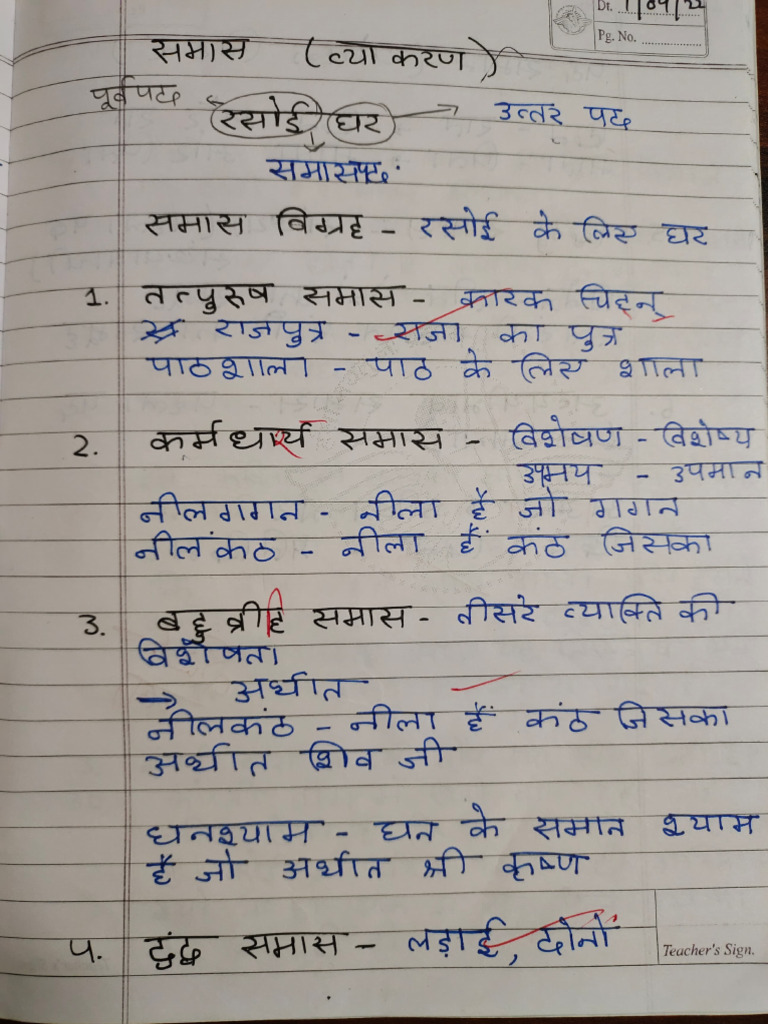 Dt. 1/04/22
Pg. No.
समास (व्याकरण)
पूर्वपद
रसोई घर → उत्तर पद
समासपद
समास विग्रह - रसोई के लिए घर
1. तत्पुरुष समास - कारक चिह्न
राजपुत्र - राजा का पुत्र
पाठशाला - पाठ के लिए शाला
2. कर्मधार्य समास - विशेषण - विशेष्य
उपमय - उपमान
नीलगगन - नीला है जो गगन
नीलकंठ - नीला हैं कंठ जिसका
3. बहुव्रीहि समास - तीसरे व्याक्ति की
विशेषता
→ अर्थात
नीलकंठ - नीला हैं कंठ जिसका
अर्थात शिव जी
घनश्याम - घन के समान श्याम
है जो अर्थात श्री कृष्ण
4. द्वंद्व समास - लड़ाई, दोनों
Teacher's Sign.